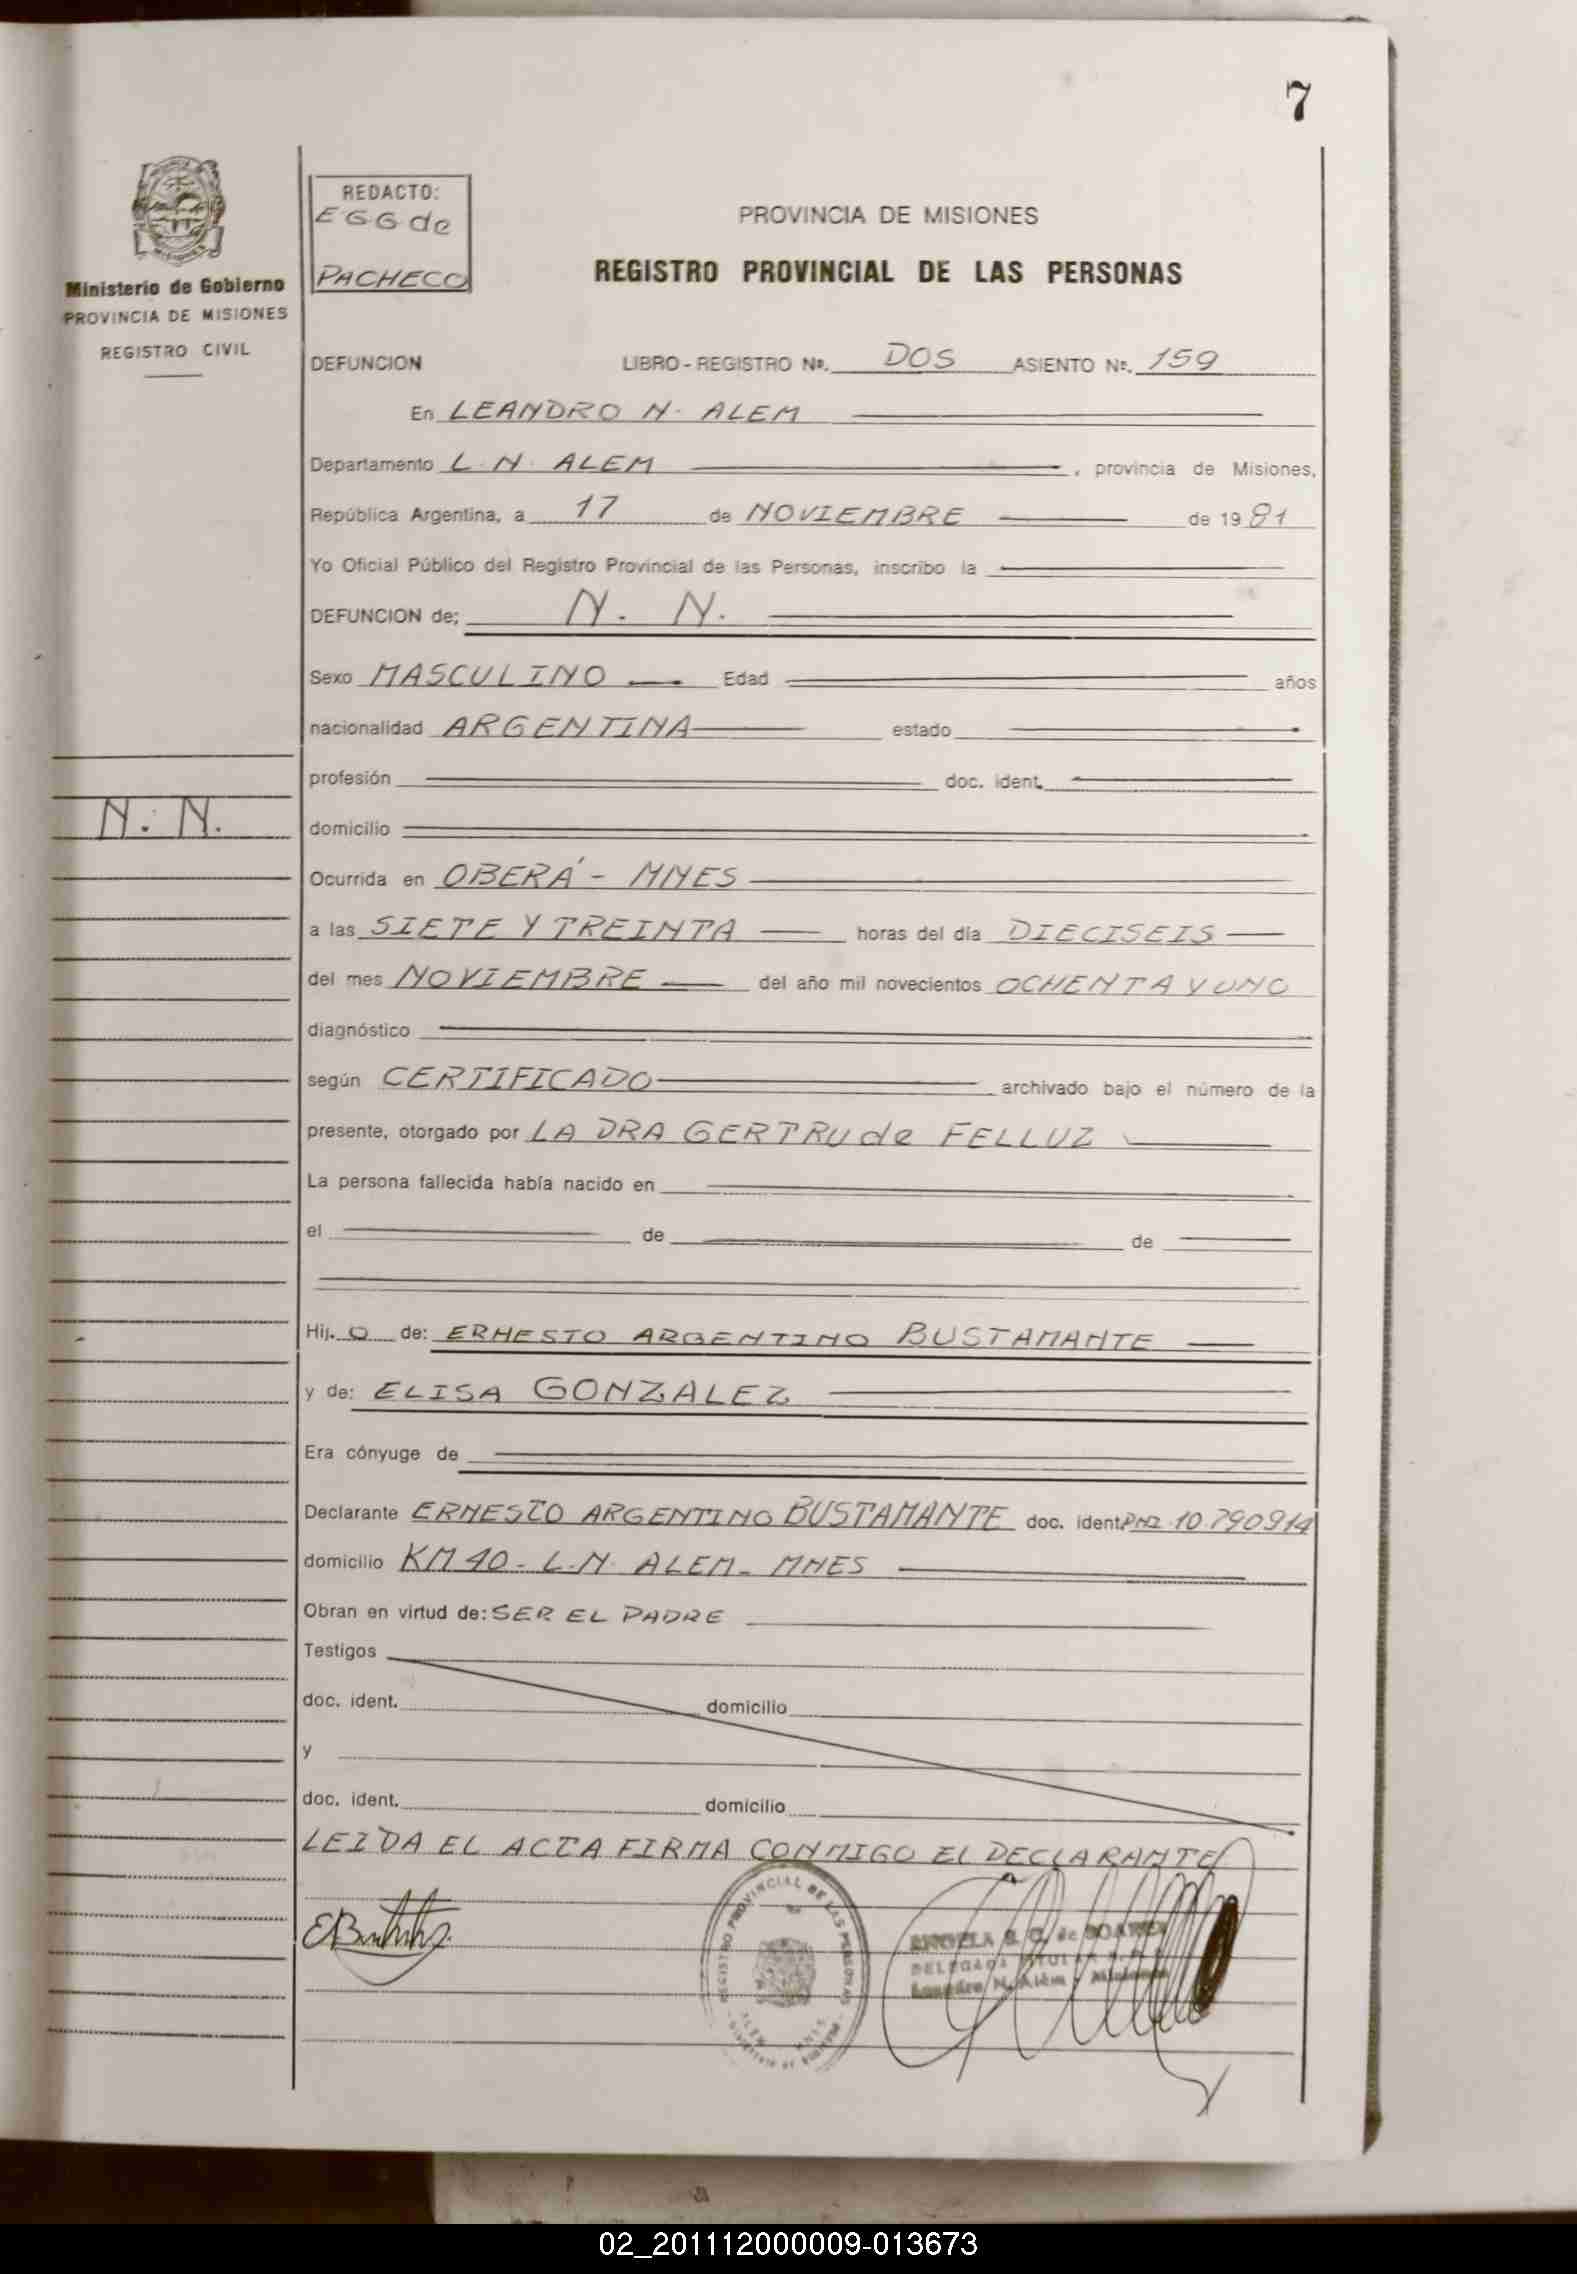 7
Ministerio de Gobierno
PROVINCIA DE MISIONES
REGISTRO CIVIL
REDACTO:
EGG de
PACHECO
PROVINCIA DE MISIONES
REGISTRO PROVINCIAL DE LAS PERSONAS
DEFUNCION LIBRO-REGISTRO Nº. DOS ASIENTO Nº. 159
En LEANDRO N. ALEM
Departamento L. N. ALEM, provincia de Misiones,
República Argentina, a 17 de NOVIEMBRE de 1981
Yo Oficial Público del Registro Provincial de las Personas, inscribo la
DEFUNCION de; N. N.
Sexo MASCULINO Edad años
nacionalidad ARGENTINA estado
profesión doc. ident.
N. N.
domicilio
Ocurrida en OBERÁ - MNES
a las SIETE Y TREINTA horas del día DIECISEIS
del mes NOVIEMBRE del año mil novecientos OCHENTA Y UNO
diagnóstico
según CERTIFICADO archivado bajo el número de la
presente, otorgado por LA DRA GERTRUde FELLUZ
La persona fallecida había nacido en
el de de
Hij. O de: ERNESTO ARGENTINO BUSTAMANTE
y de: ELISA GONZALEZ
Era cónyuge de
Declarante ERNESTO ARGENTINO BUSTAMANTE doc. ident. 10.790914
domicilio KM 40 - L.N. ALEM - MNES
Obran en virtud de: SER EL PADRE
Testigos
doc. ident. domicilio
y
doc. ident. domicilio
LEIDA EL ACTA FIRMA CONMIGO EL DECLARANTE
REGISTRO PROVINCIAL DE LAS PERSONAS
Leandro N. Alem - Misiones
02_201112000009-013673